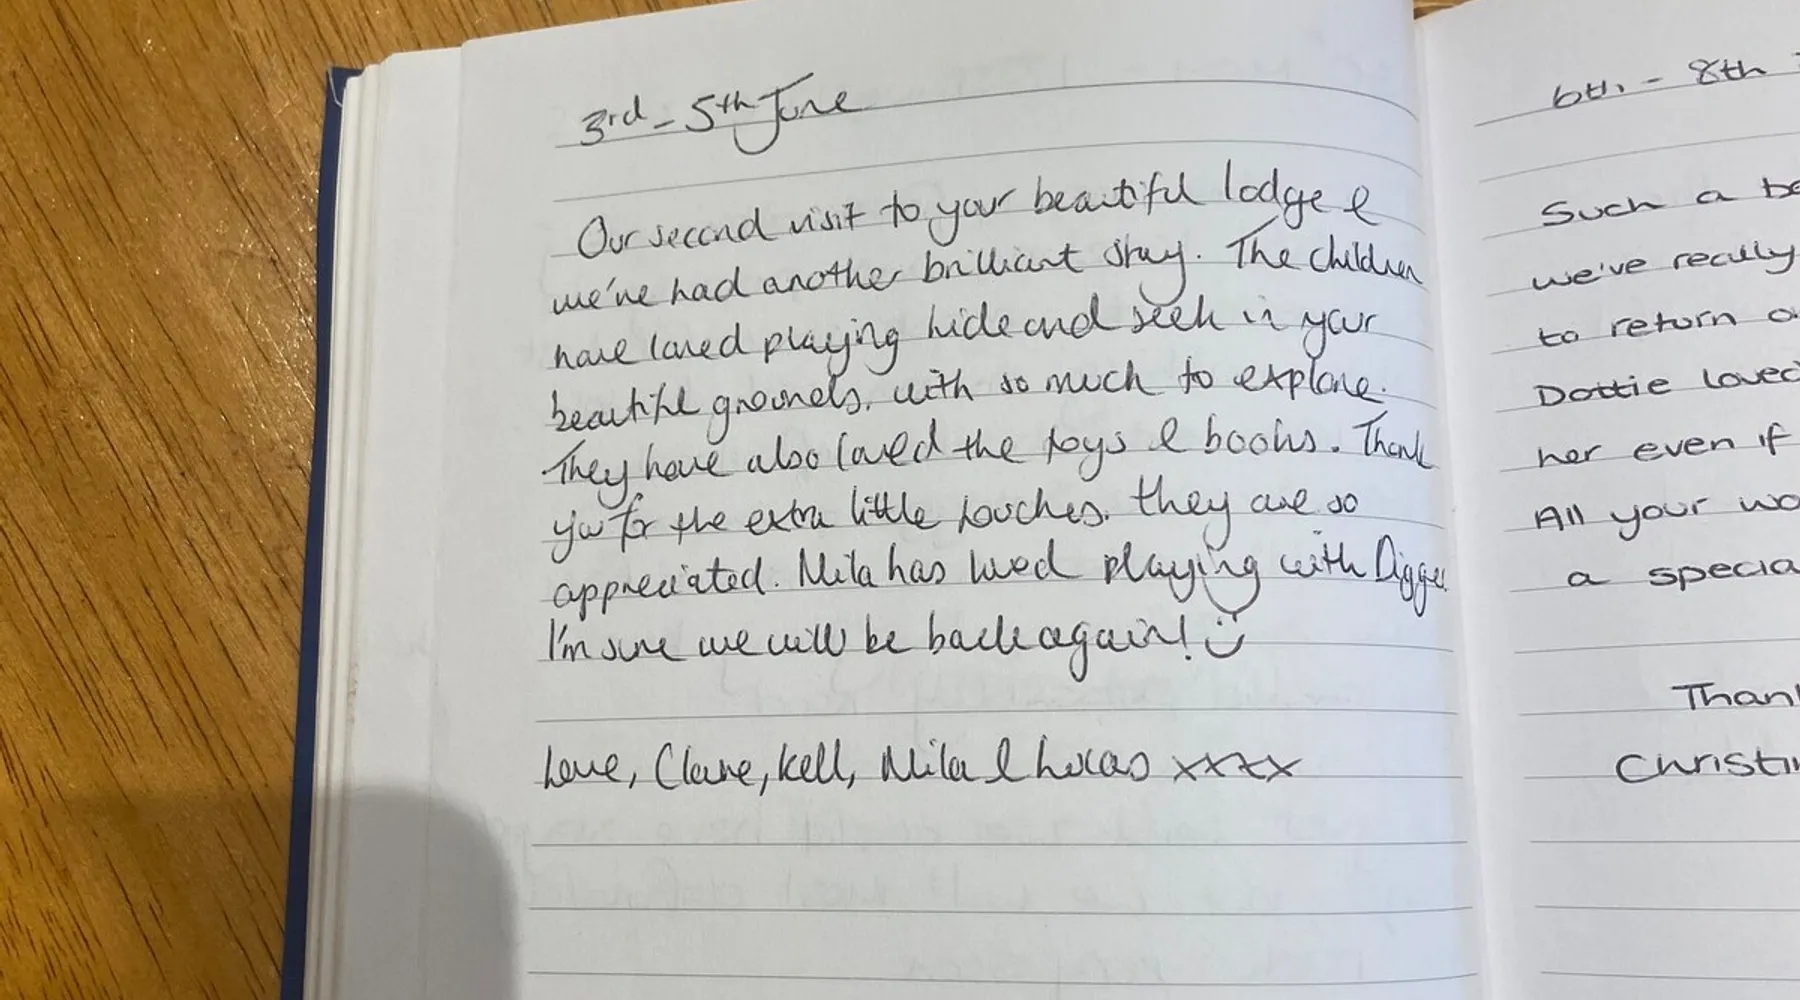 3rd - 5th June
Our second visit to your beautiful lodge &
we've had another brilliant stay. The children
have loved playing hide and seek in your
beautiful grounds, with so much to explore.
They have also loved the toys & books. Thank
you for the extra little touches, they are so
appreciated. Mila has loved playing with Digger.
I'm sure we will be back again! :)
Love, Clare, Kell, Mila & Lucas xxxx
6th - 8th
Such a
we've really
to return
Dottie loved
her even if
All your
a
Christi